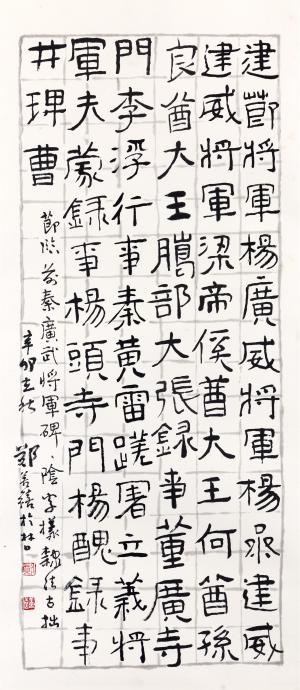 建節將軍楊廣威將軍楊建威
建威將軍梁帝侯酋大王何酋孫
良酋大王騰部大張錄事董廣寺
門李浮行事秦黃雷蹉屠立義將
軍夫蒙錄事楊頭寺門楊醜錄事
井琕曹
節臨前秦廣武將軍碑、陰字樣古拙
辛卯立秋
鄭善禧於林口